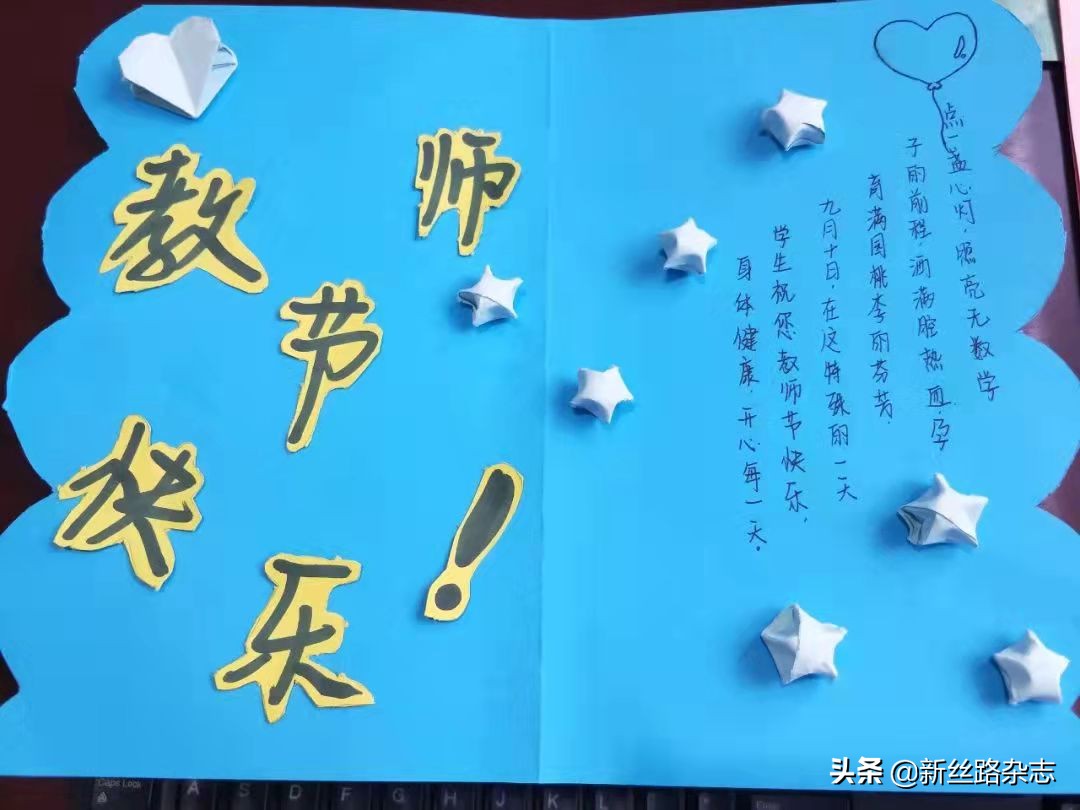 教师
节
快
乐!
点一盏心灯,照亮无数学
子的前程,洒满腔热血,孕
育满园桃李的芬芳.
九月十日,在这特殊的一天
学生祝您教师节快乐,
身体健康,开心每一天.
Caps Lock A S D F G H J K L
头条 @新丝路杂志